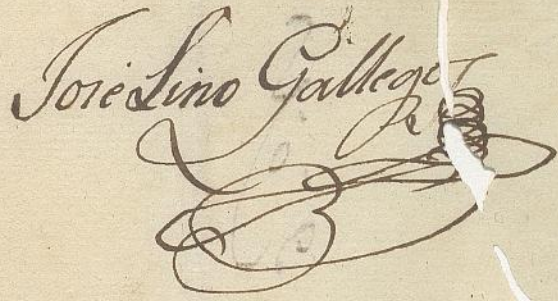 José Lino Gallegos